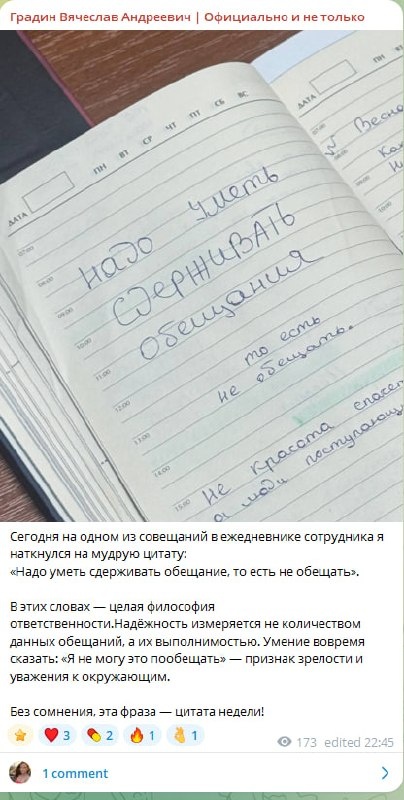 Градин Вячеслав Андреевич | Официально и не только
ДАТА ПН ВТ СР ЧТ ПТ СБ ВС
ДАТА ПН
07:00
08:00
09:00
10:00
11:00
12:00
13:00
14:00
15:00
надо уметь
сдерживать
обещания
то есть
не обещать.
Не красота спасет
а люди поступающ
07:00 Весна
08:00
09:00
10:00
Сегодня на одном из совещаний в ежедневнике сотрудника я
наткнулся на мудрую цитату:
«Надо уметь сдерживать обещание, то есть не обещать».
В этих словах — целая философия
ответственности.Надёжность измеряется не количеством
данных обещаний, а их выполнимостью. Умение вовремя
сказать: «Я не могу это пообещать» — признак зрелости и
уважения к окружающим.
Без сомнения, эта фраза — цитата недели!
3 2 1 1
173 edited 22:45
1 comment